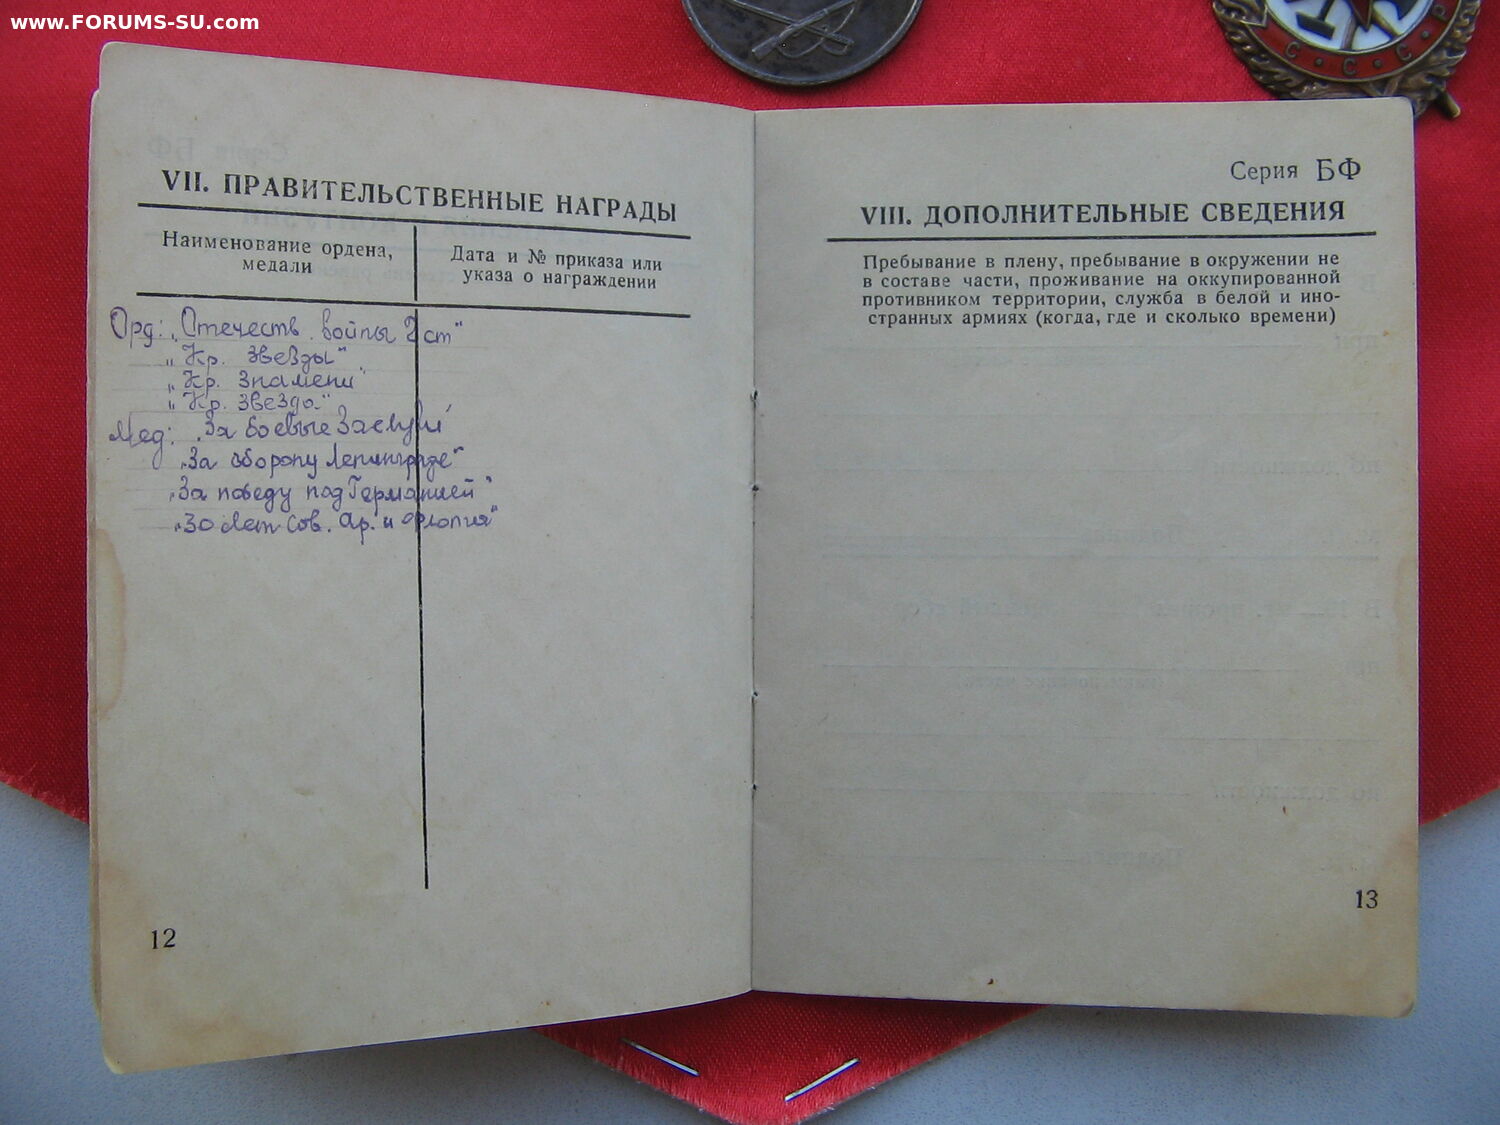 www.FORUMS-SU.com
С · С · С · Р
VII. ПРАВИТЕЛЬСТВЕННЫЕ НАГРАДЫ
Наименование ордена, медали
Дата и № приказа или указа о награждении
Орд: „Отечеств. войны 2 ст"
„Кр. Звезды"
„Кр. Знамени"
„Кр. Звезда"
Мед: „За боевые Заслуги"
„За оборону Ленинграде"
„За победу над Германией"
„30 лет Сов. Ар. и Флотия"
12
Серия БФ
VIII. ДОПОЛНИТЕЛЬНЫЕ СВЕДЕНИЯ
Пребывание в плену, пребывание в окружении не
в составе части, проживание на оккупированной
противником территории, служба в белой и ино-
странных армиях (когда, где и сколько времени)
13